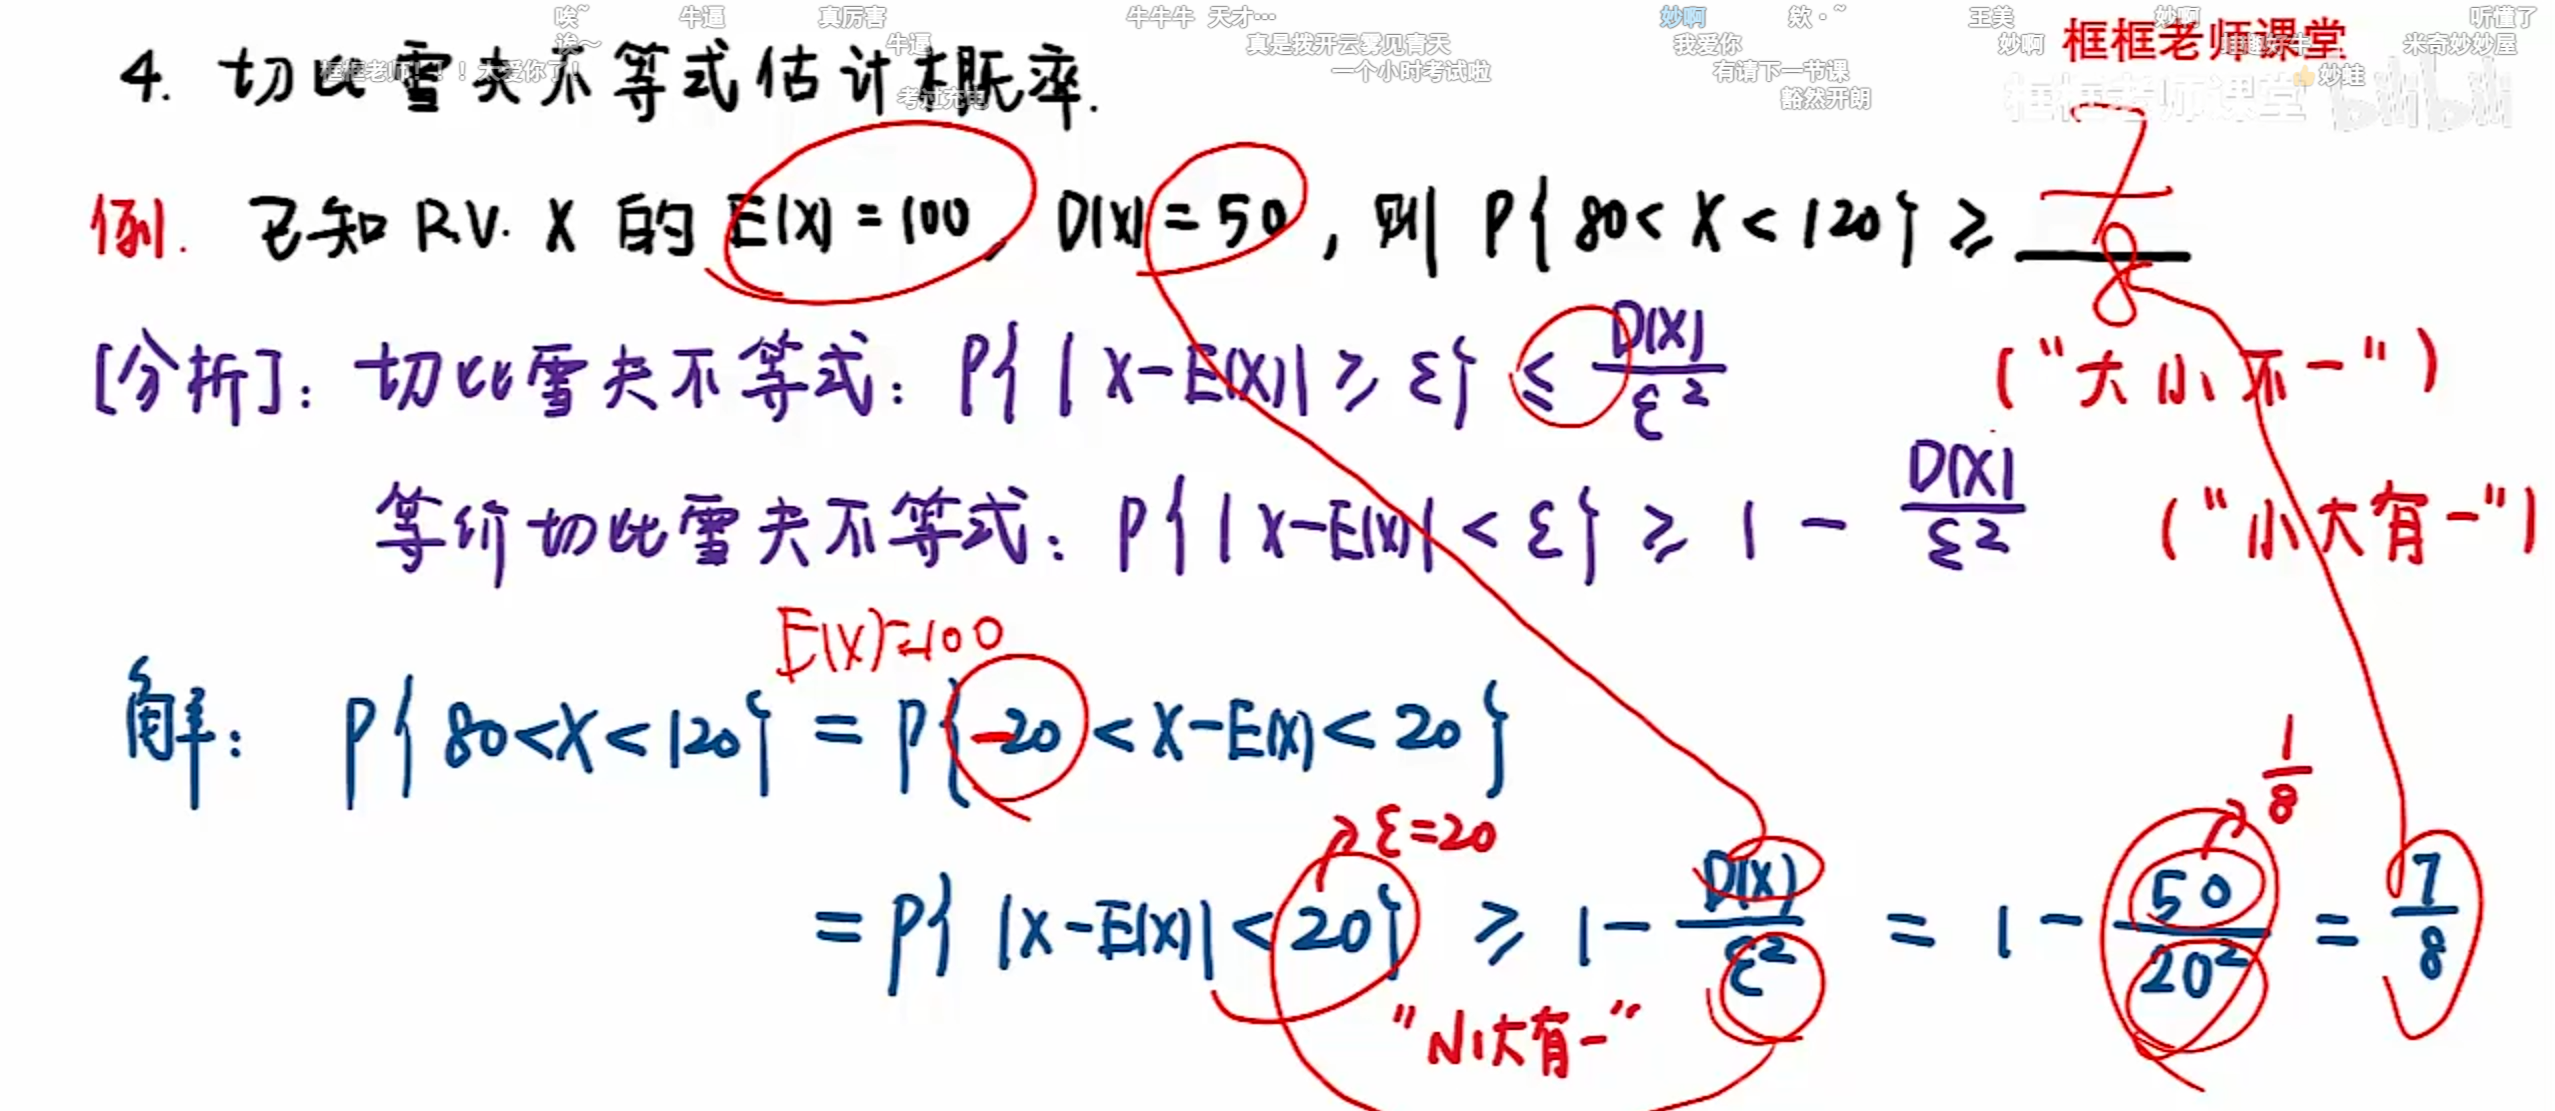 唉~ 牛逼 真厉害 牛牛牛 天才… 妙啊 欸·~ 王美 妙啊 听懂了
诶~ 牛逼 真是拨开云雾见青天 我爱你 妙啊 框框老师课堂 米奇妙妙屋
框框老师！！！大爱你了！ 一个小时考试啦 有请下一节课 👍妙蛙
考过充电 豁然开朗 框框老师课堂 bilibili
4. 切比雪夫不等式估计概率.
例. 已知 R.V. X 的 E(X)=100, D(X)=50, 则 P{80<X<120} ≥ 7/8
[分析]: 切比雪夫不等式: P{|X-E(X)|≥ε} ≤ D(X)/ε² ("大小不一")
等价切比雪夫不等式: P{|X-E(X)|<ε} ≥ 1 - D(X)/ε² ("小大有一")
E(X)=100
解: P{80<X<120} = P{-20<X-E(X)<20}
ε=20 1/8
= P{|X-E(X)|<20} ≥ 1 - D(X)/ε² = 1 - 50/20² = 7/8
"小大有一"